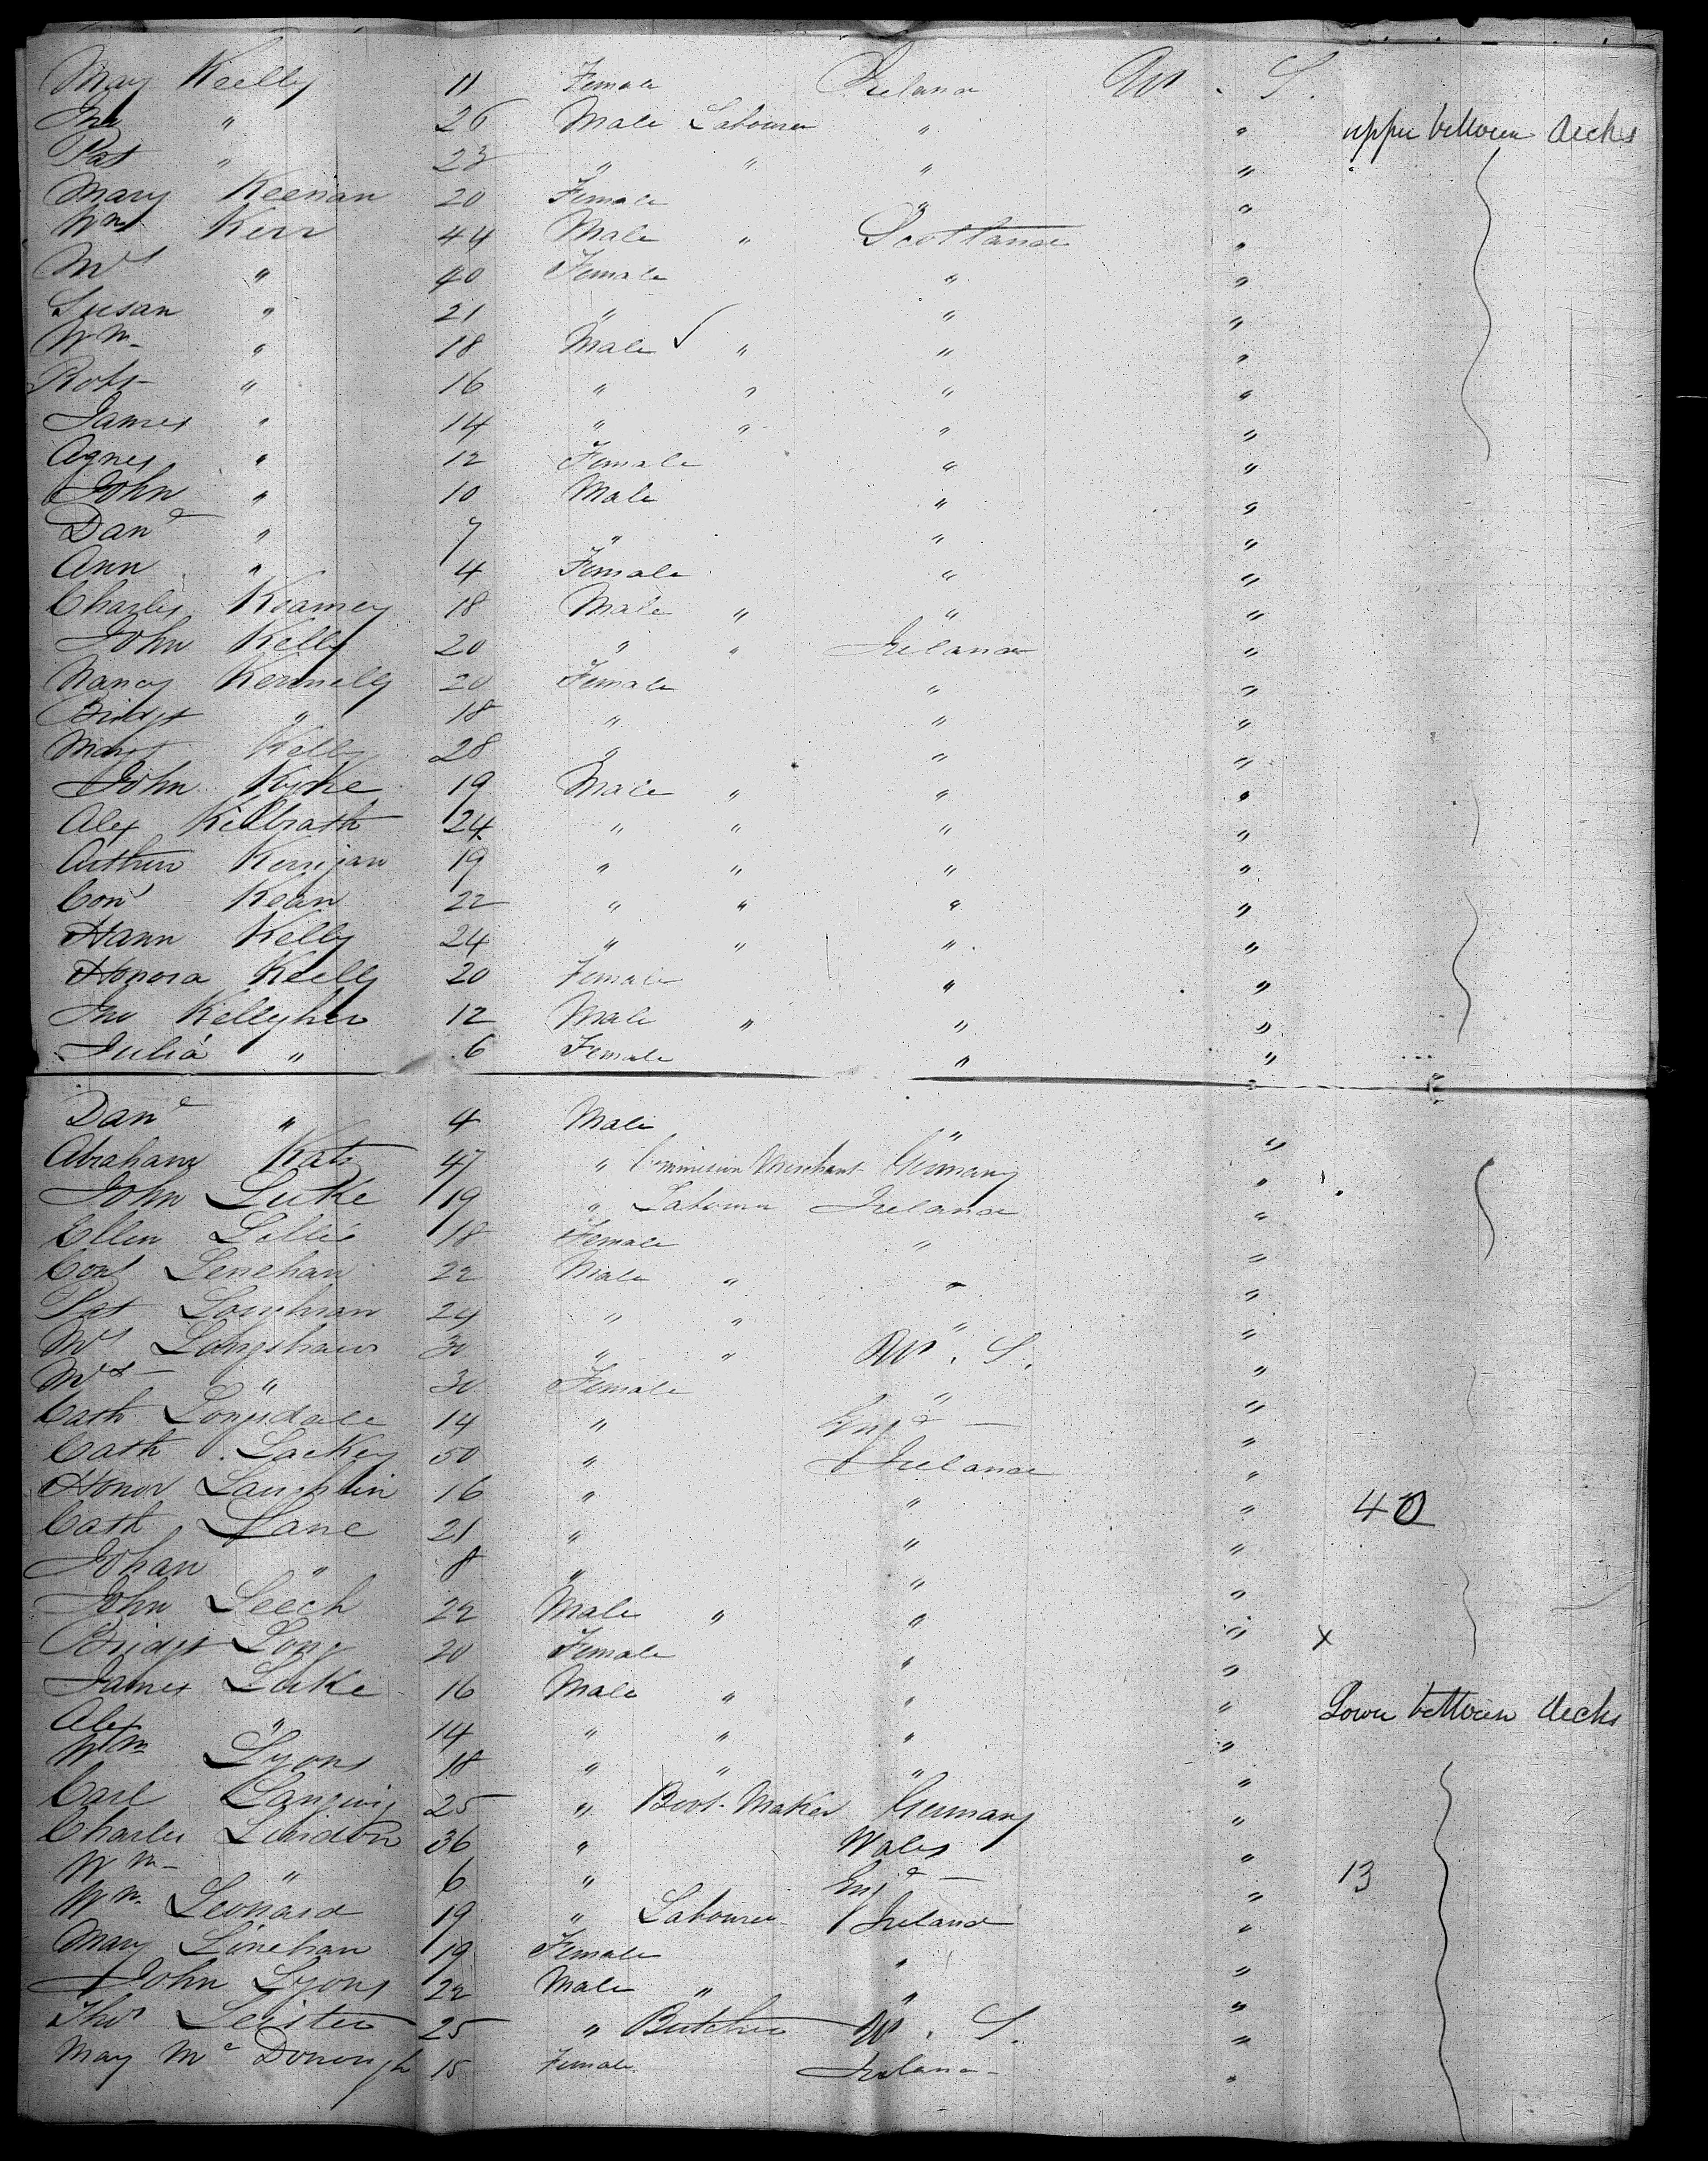 Mary Keelly 11 Female Ireland U. S.
Jno " 26 Male Labourer " " upper between decks
Pat " 23 " " " "
Mary Keenan 20 Female " "
Wm Kerr 44 Male " Scotland "
Mrs " 40 Female " "
Susan " 21 " " "
Wm " 18 Male " " "
Robt " 16 " " " "
James " 14 " " " "
Agnes " 12 Female " "
John " 10 Male " "
Danl " 7 " " "
Ann " 4 Female " "
Charles 18 Male " " "
John Kelly 20 " " Ireland "
Nancy Kennelly 20 Female " "
Bridgt " 18 " " "
Margt Kelly 28 " " "
John 19 Male " " "
Alex Killrath 24 " " " "
Arthur Kerrigan 19 " " " "
Con Kean 22 " " " "
Hann Kelly 24 " " " "
Honora Keelly 20 Female " "
Jno Kellyher 12 Male " " "
Julia " 6 Female " "
Danl " 4 Male " "
Abraham Katz 47 " Commission Merchant Germany "
John Luke 19 " Labourer Ireland "
Ellen Lillie 18 Female " "
Con Lenehan 22 Male " " "
Pat Loughran 24 " " " "
Mr Longshaw 30 " " U. S. "
Mrs " 30 Female " "
Cath Longsdale 14 " Engd "
Cath Lackey 50 " Ireland "
Honor Laughlin 16 " " " 40
Cath Lane 21 " " "
Johan " 8 " " "
John Leech 22 Male " " "
Bridgt Long 20 Female " " x
James Luke 16 Male " " " Lower between decks
Alex " 14 " " " "
Wm Lyons 18 " " " "
Carl Langwig 25 " Boot Maker Germany "
Charles Lundon 36 " Wales "
Wm " 6 " Engd " 13
Wm Leonard 19 " Labourer Ireland "
Mary Linehan 19 Female " "
John Lyons 22 Male " " "
Thos Leister 25 " Butcher U. S. "
Mary McDonough 15 Female Ireland "